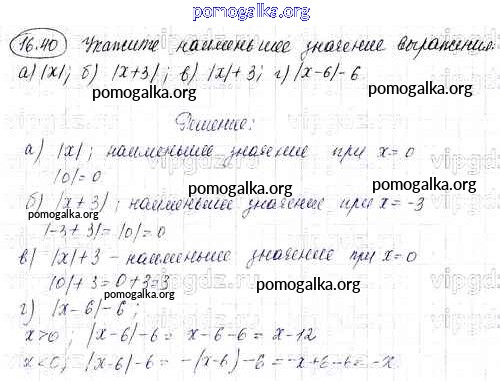 pomogalka.org
16.40 Укажите наименьшее значение выражения:
а) |x|; б) |x+3|; в) |x|+3; г) |x-6|-6
pomogalka.org pomogalka.org
Решение:
а) |x|; наименьшее значение при x=0
|0|=0
pomogalka.org
б) |x+3|; наименьшее значение при x=-3
pomogalka.org
|-3+3|=|0|=0
pomogalka.org
в) |x|+3 - наименьшее значение при x=0
|0|+3=0+3=3
pomogalka.org
г) |x-6|-6;
pomogalka.org
x>0; |x-6|-6= x-6-6= x-12
x<0; |x-6|-6= -(x-6)-6=-x+6-6=-x